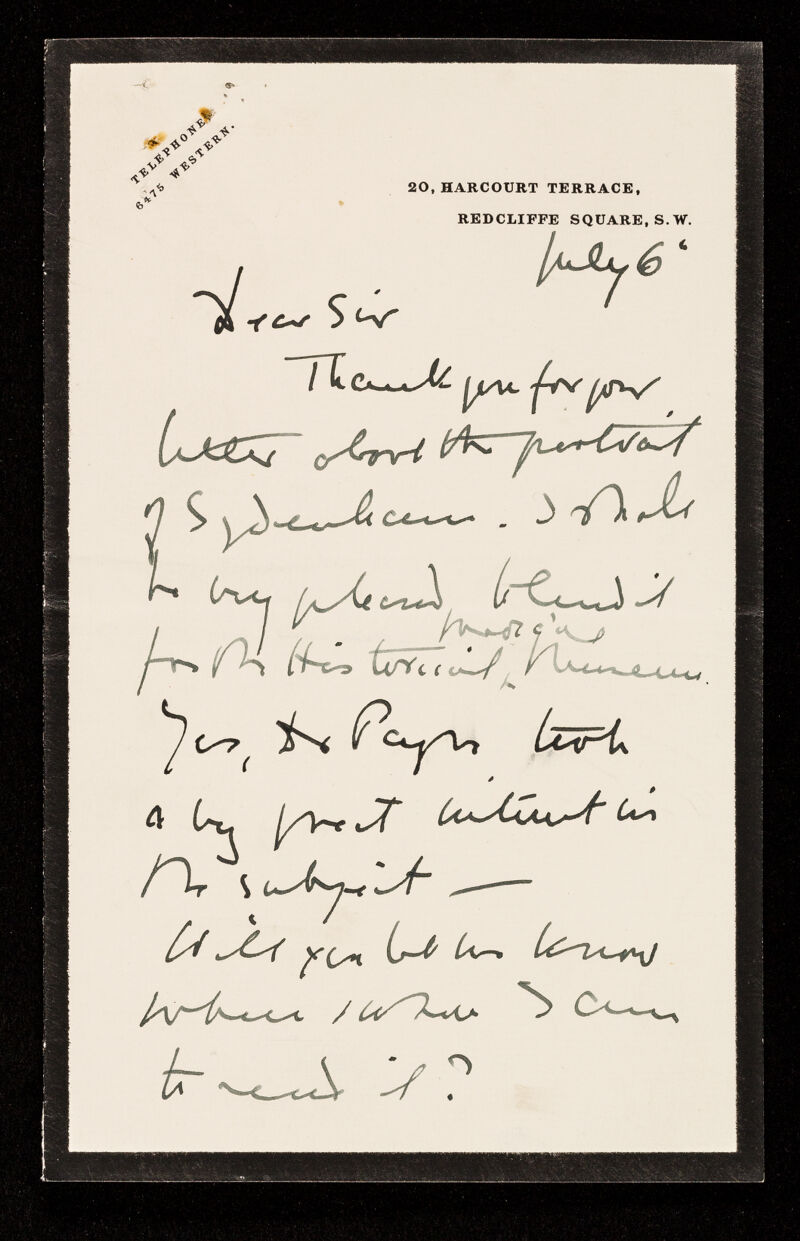 TELEPHONE
6475 WESTERN.
20, HARCOURT TERRACE,
REDCLIFFE SQUARE, S.W.
July 6
Dear Sir
Thank you for your
letter about the portrait
of Sydenham. I shall
be very pleased to lend it
for the Historical Medical Museum.
Yes, Dr Payne took
a very great interest in
the subject —
Will you let me know
when & where I am
to send it?